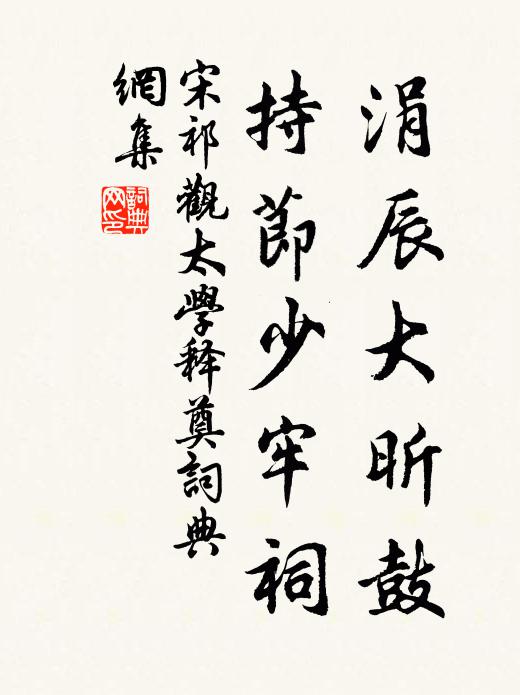 涓辰大昕鼓
持節少牢祠
宋祁觀太學释奠詞典
網集
詞典
网印